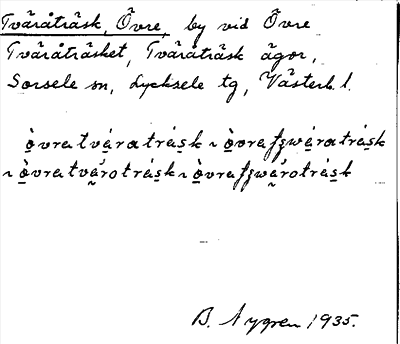 Tväråträsk, Övre, by vid Övre
Tväråträsket, Tväråträsk ägor,
Sorsele sn, Lycksele tg, Västerb. l.
òvratváratrásk ~ òvrafswáratrásk
~ òvratvárotrásk ~ òvrafswárotrásk
B. Nygren 1935.